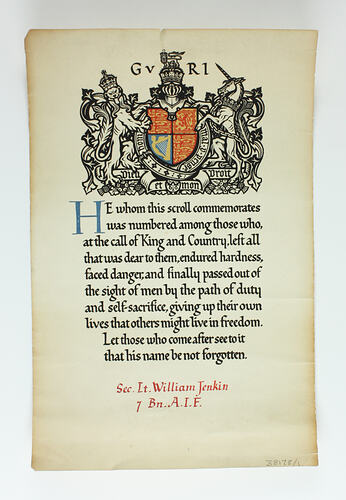 G V R I
Dieu et mon Droit
HE whom this scroll commemorates
was numbered among those who,
at the call of King and Country, left all
that was dear to them, endured hardness,
faced danger, and finally passed out of
the sight of men by the path of duty
and self-sacrifice, giving up their own
lives that others might live in freedom.
Let those who come after see to it
that his name be not forgotten.
Sec. Lt. William Jenkin
7 Bn. A.I.F.